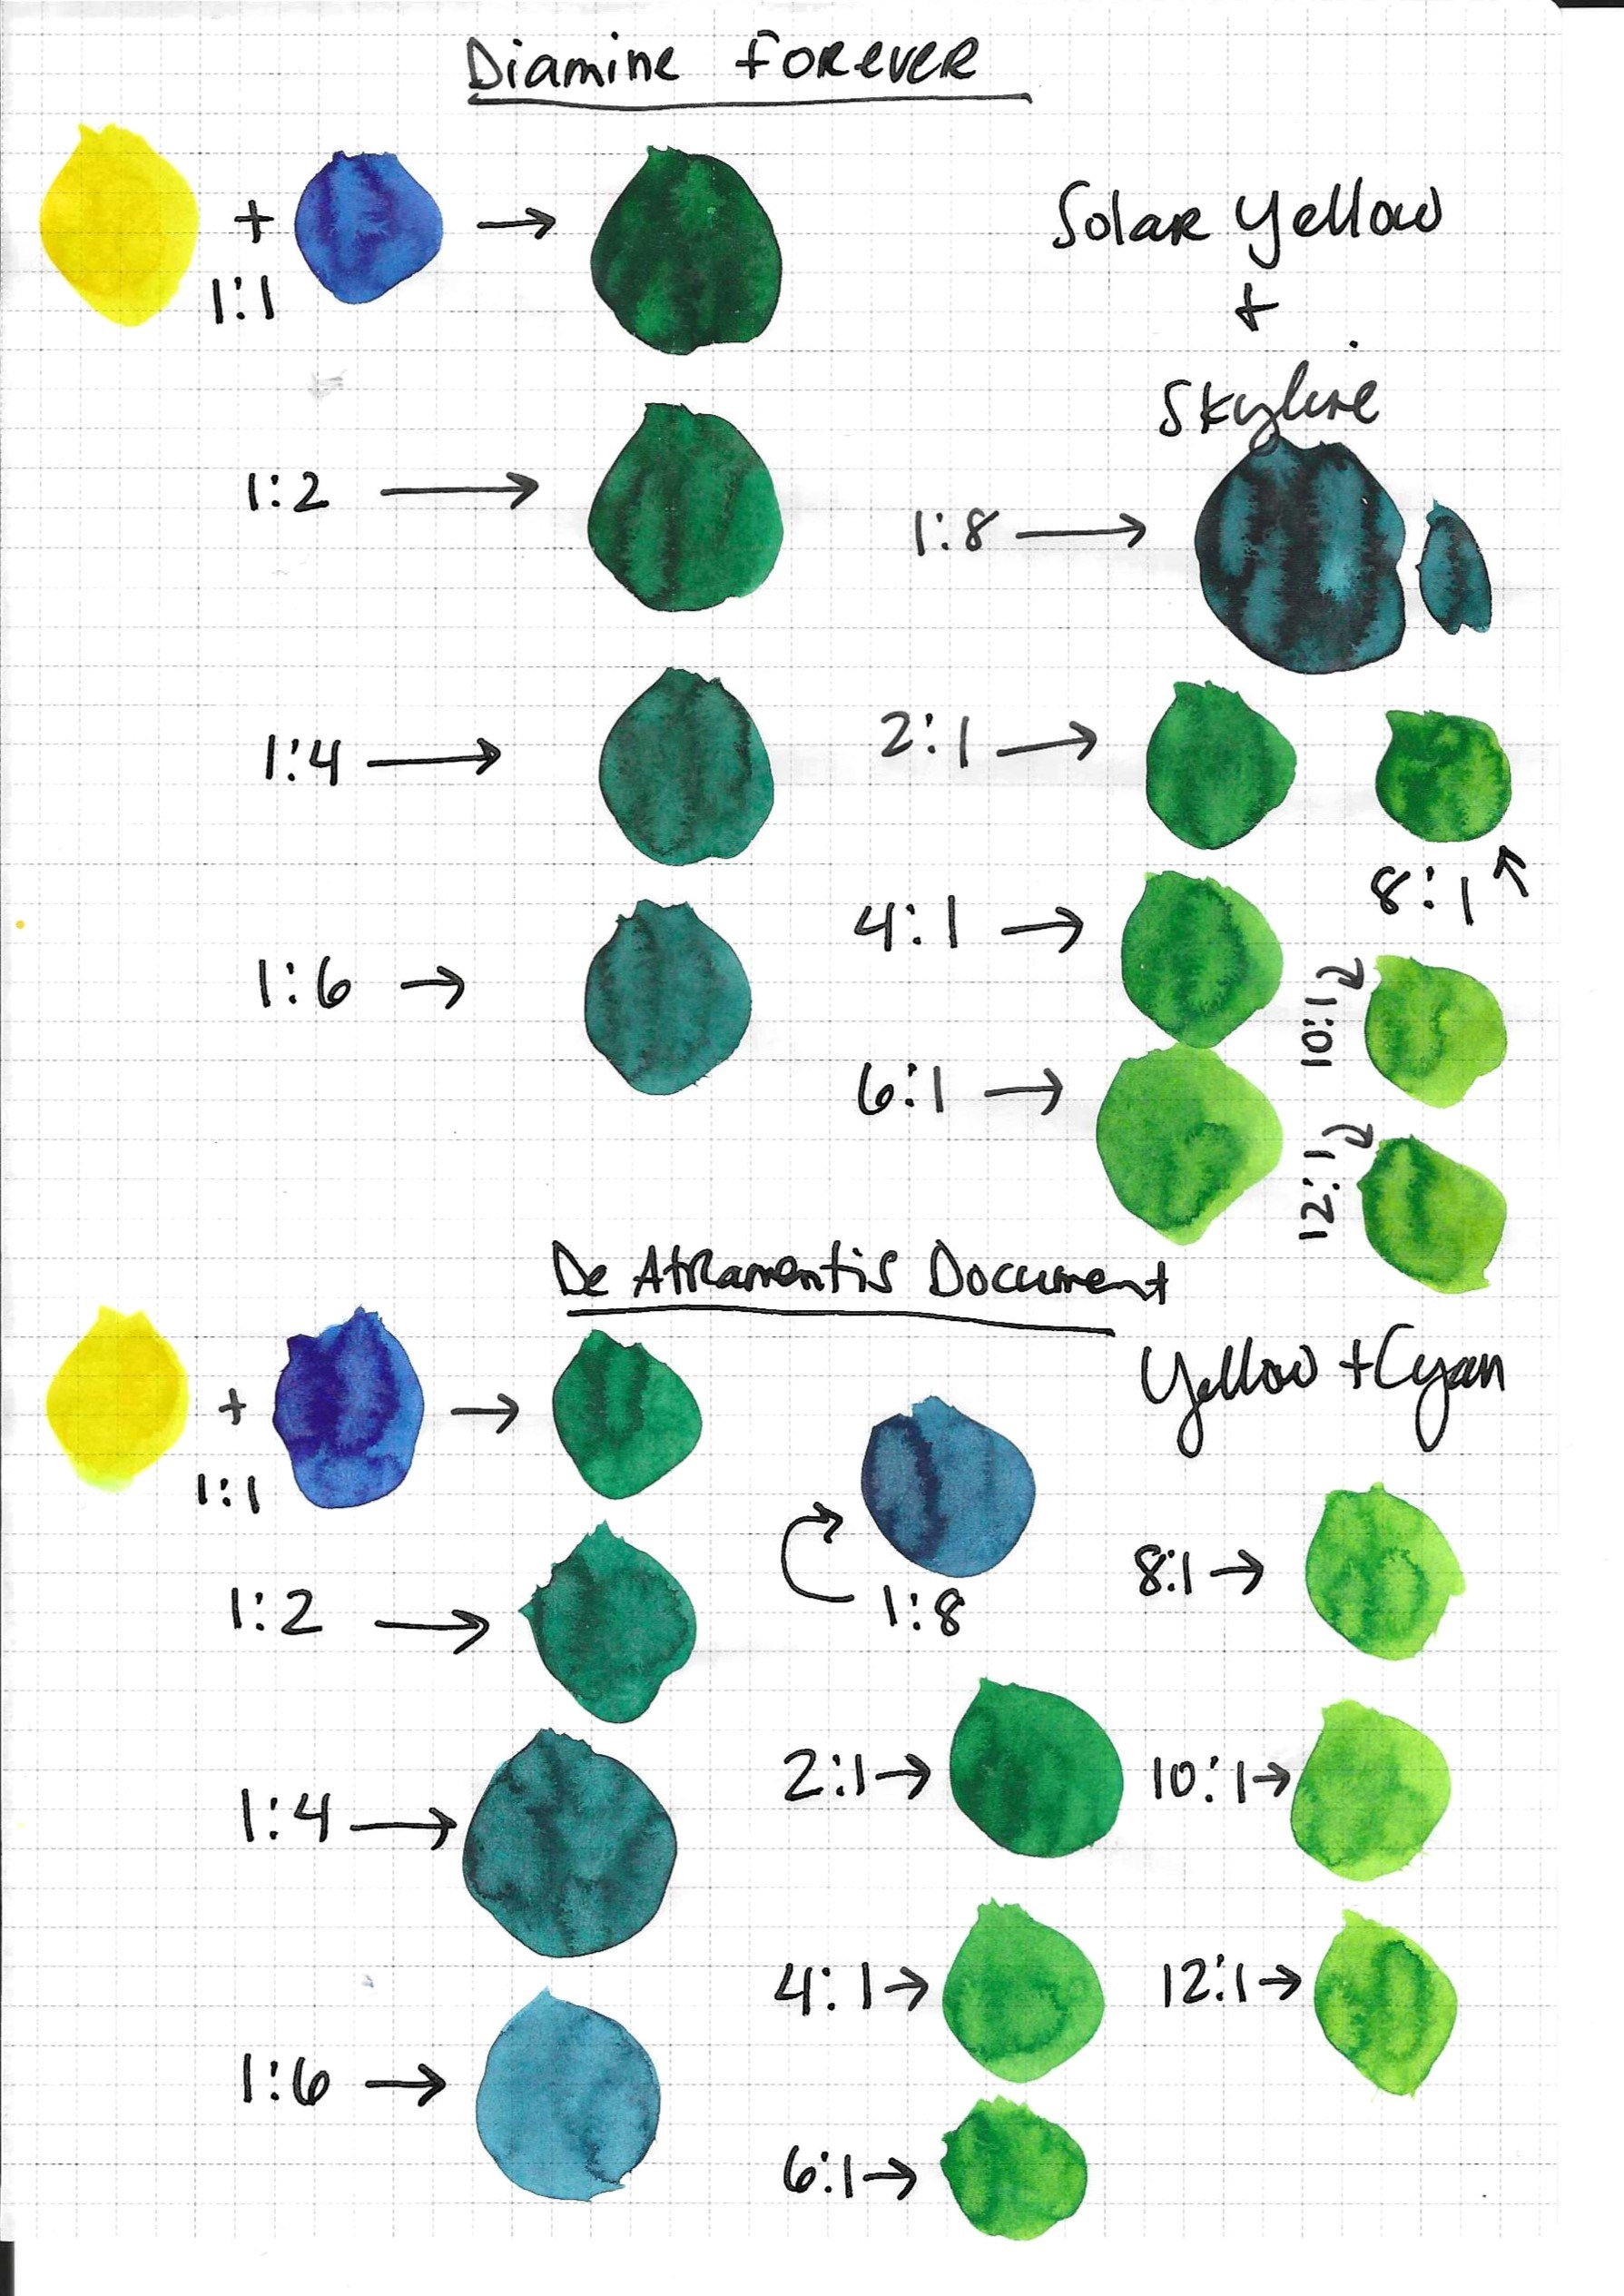 Diamine Forever
+
1:1
→
Solar Yellow
+
Skyline
1:2 →
1:8 →
1:4 →
2:1 →
8:1 ↑
4:1 →
1:6 →
10:1
6:1 →
12:1
De Atramentis Document
Yellow + Cyan
+
1:1
→
1:8
8:1 →
1:2 →
2:1 →
10:1 →
1:4 →
4:1 →
12:1 →
1:6 →
6:1 →